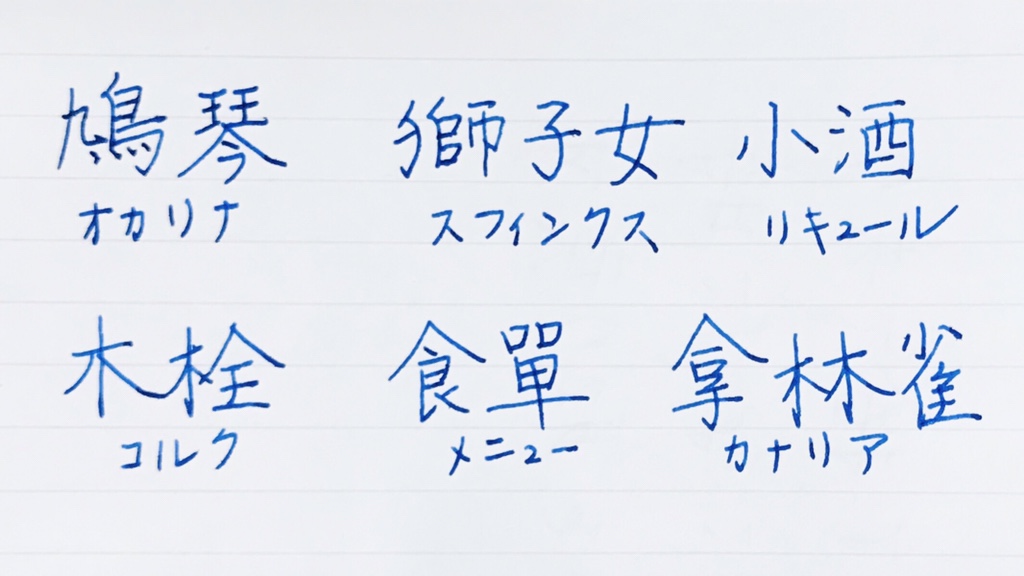 鳩琴 獅子女 小酒
オカリナ スフィンクス リキュール
木栓 食單 拿林雀
コルク メニュー カナリア